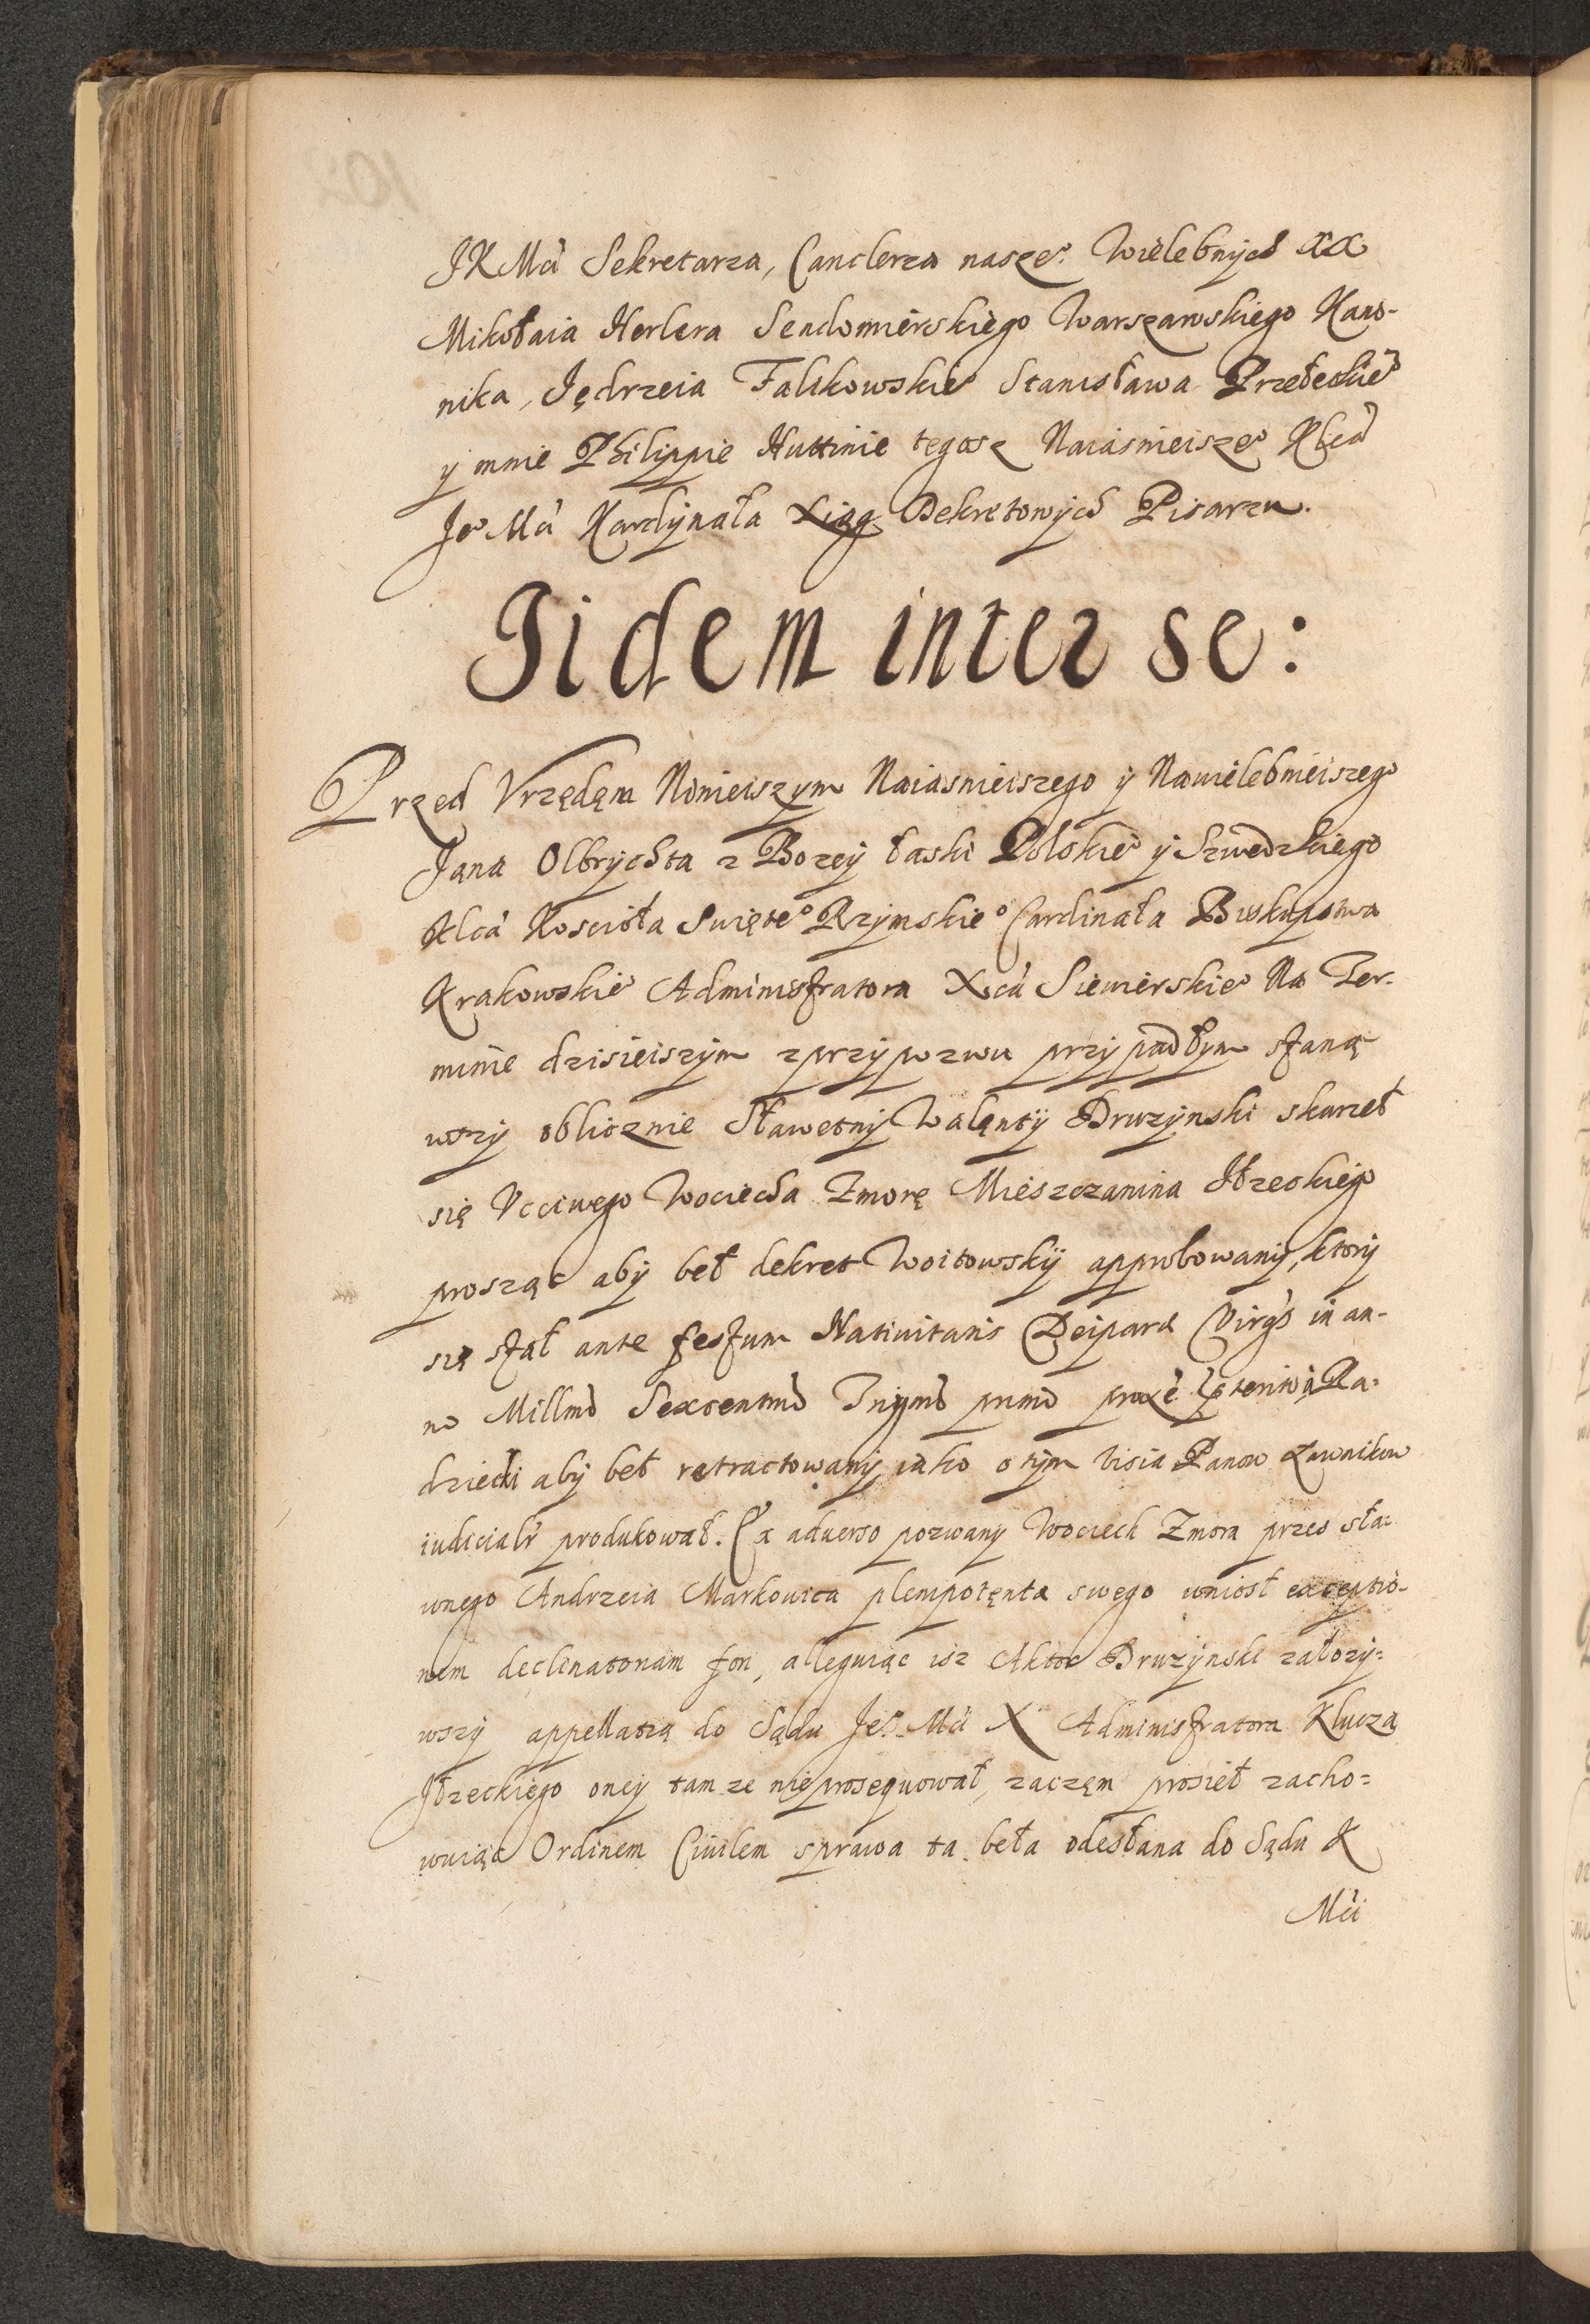 JKMći Sekretarza, Canclerza nasze°. Wielebnych xx
Mikołaia Herlera Sendomierskiego Warszawskiego Kano-
nika, Jędrzeia Falikowskie° Stanisława Przełeckie°
y mnie Philippie Huttinie tegosz Naiasnieisze° Klća
Je° Mći Kardynała Xiąg Dekretowych Pisarzu.
Iidem inter se:
Przed Vrzędęm Ninieiszym Naiasnieiszego y Nawielebnieiszego
Jana Olbrychta z Bozey łaski Polskie° y Szwedzkiego
Klća Kosciła Swięte° Rzymskie° Cardinała Biskupstwa
Krakowskie° Administratora Xcia Siewierskie° Na Ter-
minie dzisieiszym z przypozwu przypadłym staną-
wszy oblicznie Sławetny Walęnty Druzynski skarzeł
się Vcciwego Wociecha Zmorę Mieszczanina Jłzeckiego
prosząc aby beł dekret Woitowsky approbowany, ktory
się stał ante festum Nativitatis Deiparæ Virgs in an-
no Millmo Sexcentmo Trigmo primo proxe Ra-
dziecki aby beł retractowany iako o tym Panow Ławnikow
iudicialr produkował. Ex aduerso pozwany Wociech Zmora przes sła-
wnego Andrzeia Markowica plempotęnta swego wniosł exceptio-
nem declinatoriam fori, alleguiąc isz Aktor Druzynski załozy-
wszy appellatią do Sądu Je° Mći X Administratora Klucza
Jłzeckiego oney tam ze nie prosequował, zaczęm prosieł zacho-
wuiąc Ordinem Ciuilem sprawa ta beła odesłana do Sądu K
Mći